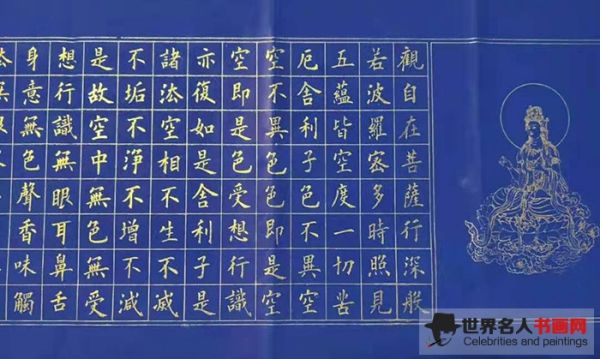 觀自在菩薩行深般
若波羅密多時照見
五蘊皆空度一切苦
厄舍利子色不異空
空不異色色即是空
空即是色受想行識
亦復如是舍利子是
諸法空相不生不滅
不垢不淨不增不減
是故空中無色無受
想行識無眼耳鼻舌
身意無色聲香味觸
世界名人书画网
Celebrities and paintings